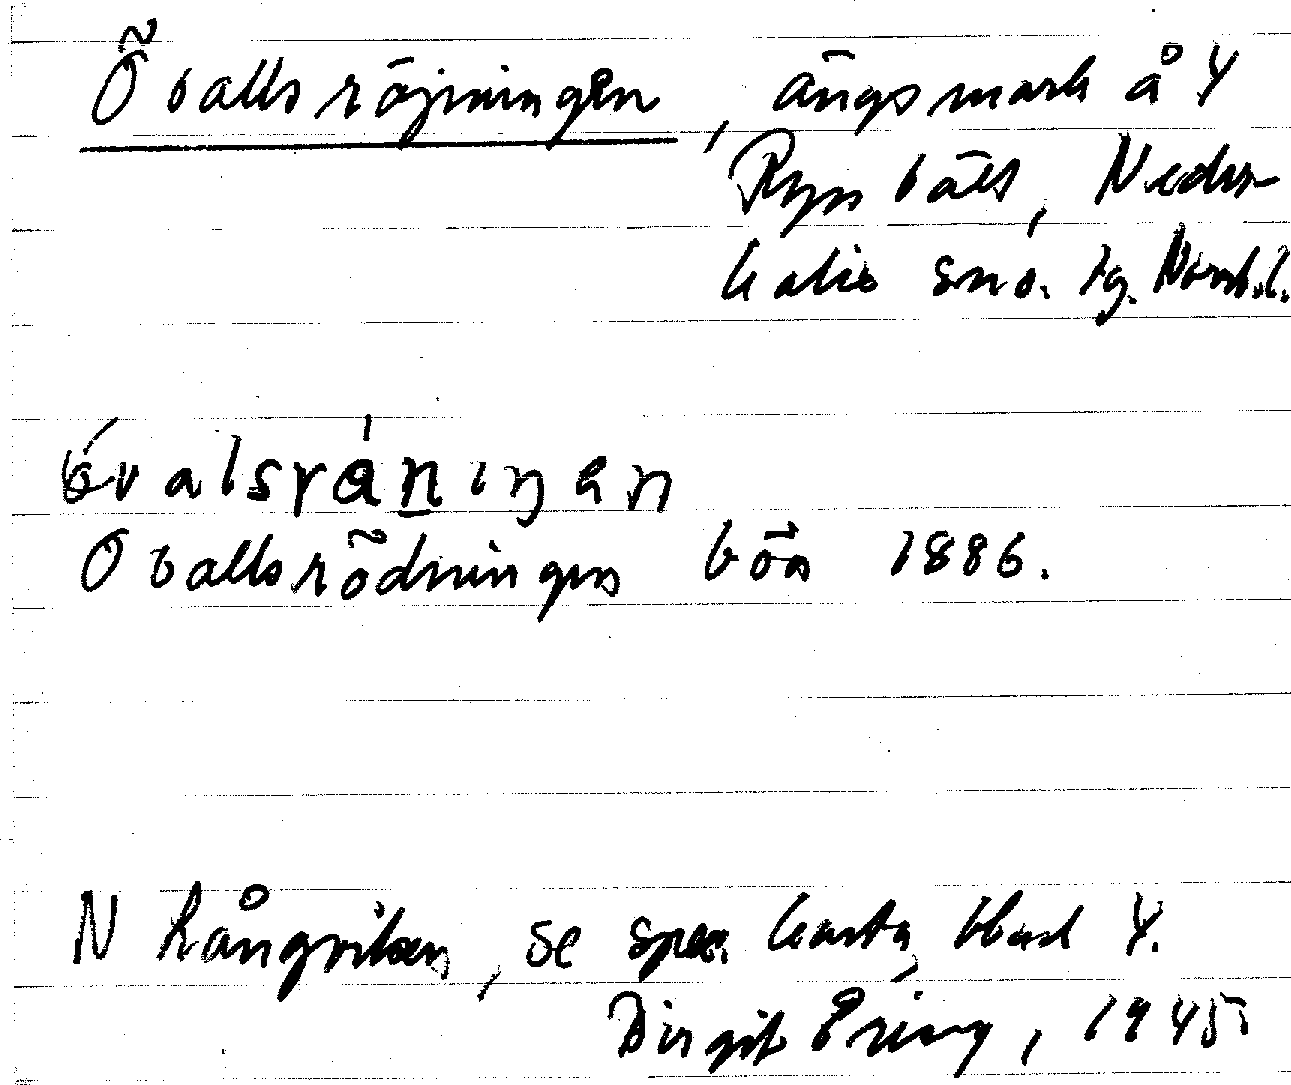 Övallsröjningen, ängsmark å 4
Rynbäck, Neder-
kalix sn o. tg. Norrb. l.
óvalsránıŋen
Övallsrödningen böa 1886.
N Långviken, se spec. karta, blad 4.
Birgit Öring, 1945